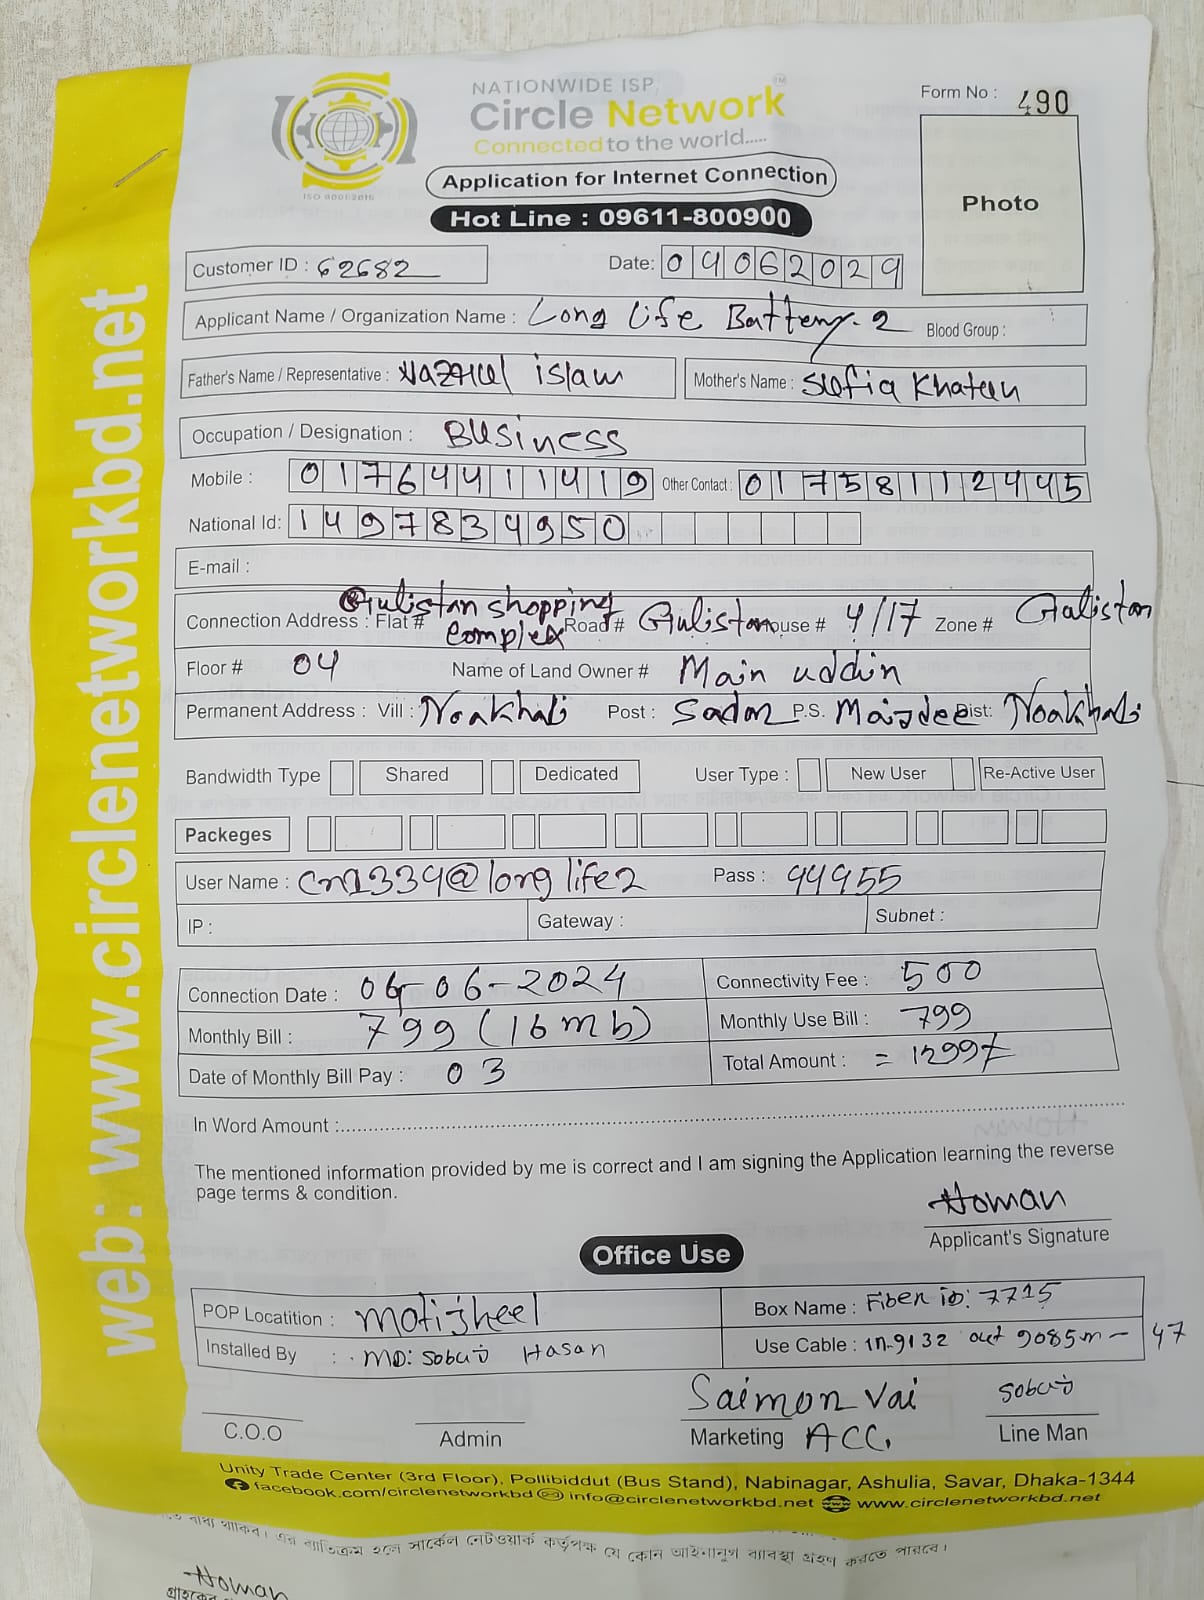 NATIONWIDE ISP
Circle Network™
Connected to the world.....
ISO 9001:2015
Application for Internet Connection
Hot Line : 09611-800900
Form No : 490
Photo
Customer ID : 62682
Date: 04062024
Applicant Name / Organization Name : Long Life Battery-2 Blood Group :
Father's Name / Representative : Nazrul islam Mother's Name : Sufia Khatun
Occupation / Designation : Business
Mobile : 01764411419 Other Contact : 01758112445
National Id: 1497834950
E-mail :
Connection Address : Flat # Gulistan shopping complex Road # Gulistan House # 4/17 Zone # Gulistan
Floor # 04 Name of Land Owner # Main uddin
Permanent Address : Vill : Noakhali Post : Sador P.S. Maijdee Dist: Noakhali
Bandwidth Type Shared Dedicated User Type : New User Re-Active User
Packeges
User Name : cn1334@longlife2 Pass : 44955
IP : Gateway : Subnet :
Connection Date : 06-06-2024 Connectivity Fee : 500
Monthly Bill : 799 (16 mb) Monthly Use Bill : 799
Date of Monthly Bill Pay : 03 Total Amount : = 1299/
In Word Amount :
The mentioned information provided by me is correct and I am signing the Application learning the reverse
page terms & condition.
Homan
Applicant's Signature
Office Use
POP Locatition : Motijheel Box Name : Fiber iD: 7715
Installed By : MD: Sobuj Hasan Use Cable : in-9132 out 9085m - 47
Saimon Vai Sobuj
C.O.O Admin Marketing ACC. Line Man
Unity Trade Center (3rd Floor), Pollibiddut (Bus Stand), Nabinagar, Ashulia, Savar, Dhaka-1344
facebook.com/circlenetworkbd info@circlenetworkbd.net www.circlenetworkbd.net
web: www.circlenetworkbd.net
বাধ্য থাকিব। এর ব্যতিক্রম হলে সার্কেল নেটওয়ার্ক কর্তৃপক্ষ যে কোন আইনানুগ ব্যাবস্থা গ্রহণ করতে পারবে।
Homan
গ্রাহকের